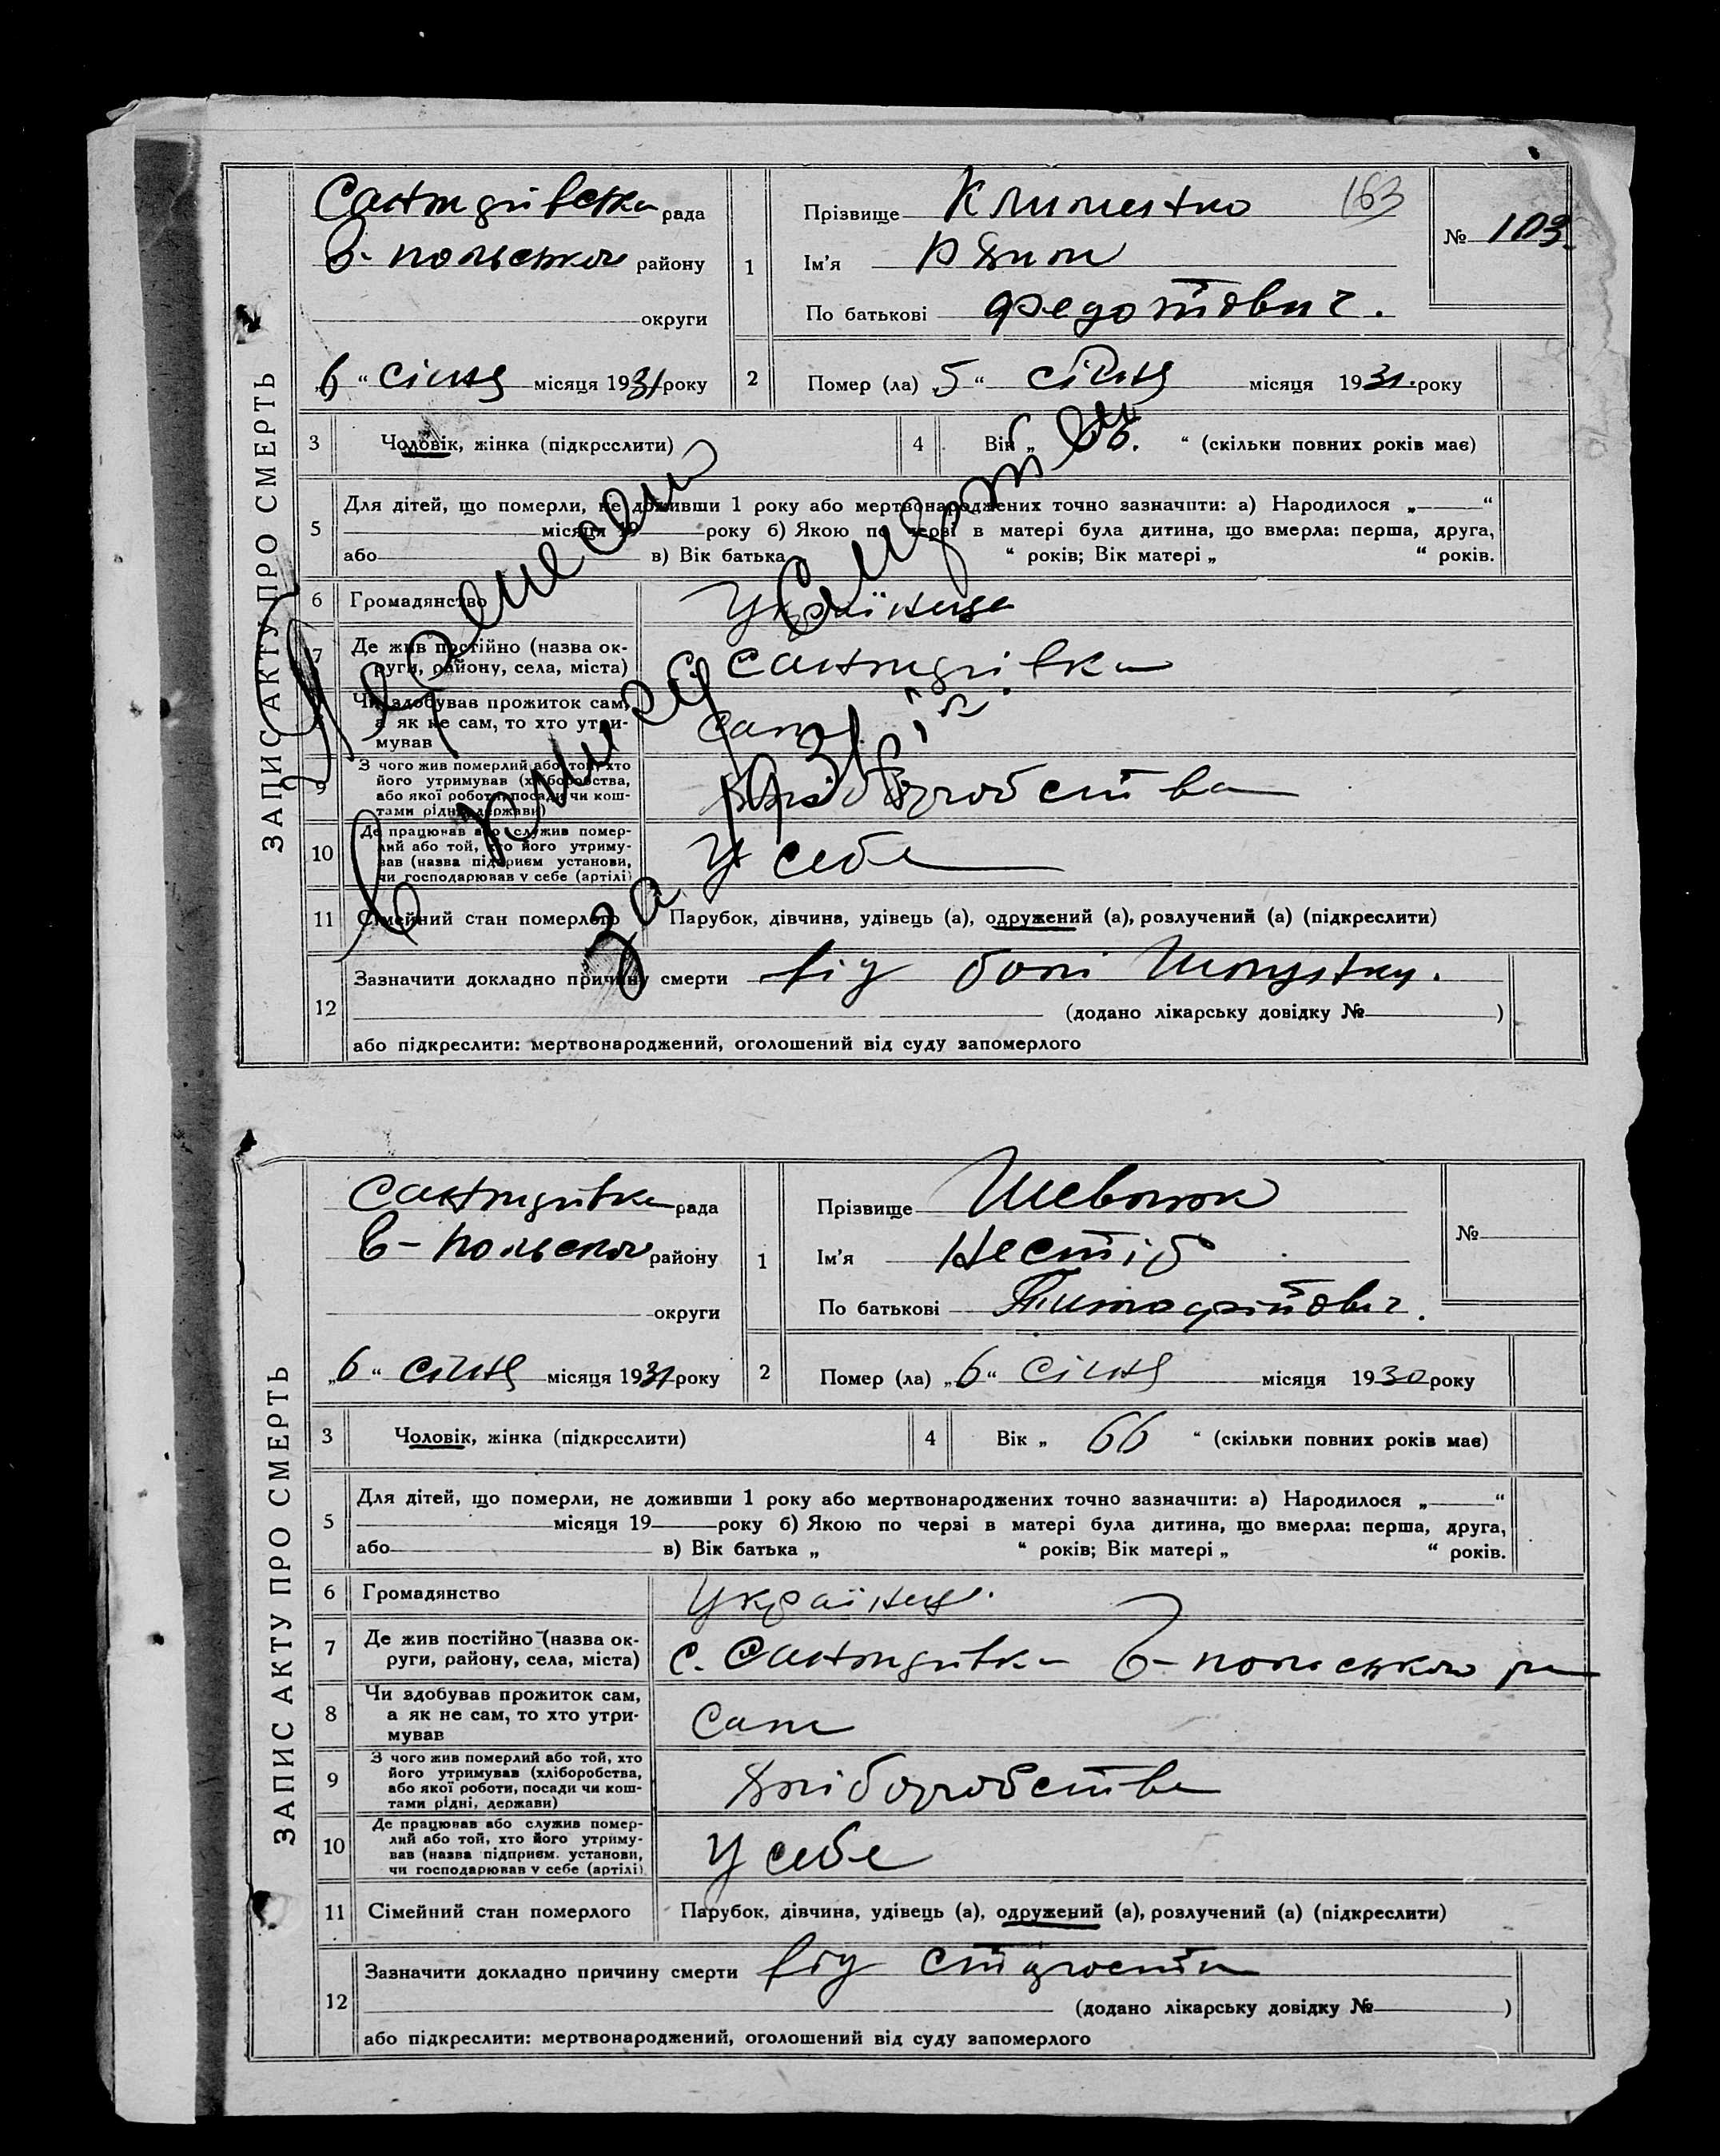 ЗАПИС АКТУ ПРО СМЕРТЬ
Сантидрівська рада
В-польського району
округи
„6“ січня місяця 1931 року
1
Прізвище Клименко
163
Ім'я
По батькові Федотович.
№ 103
2
Помер (ла) „5“ січня місяця 1931. року
3
Чоловік, жінка (підкреслити)
4
Вік „ 66. “ (скільки повних років має)
5
Для дітей, що померли, не доживши 1 року або мертвонароджених точно зазначити: а) Народилося „ “
місяця 19 року б) Якою по черзі в матері була дитина, що вмерла: перша, друга,
або в) Вік батька “ років; Вік матері „ “ років.
6
Громадянство
Українець
7
Де жив постійно (назва ок-
руги, району, села, міста)
Сантидрівка
Чи здобував прожиток сам,
а як не сам, то хто утри-
мував
сам
9
З чого жив померлий або той, хто
його утримував (хліборобства,
або якої роботи, посади чи кош-
тами рідні, держави)
хліборобства
10
Де працював або служив помер-
лий або той, хто його утриму-
вав (назва підприєм установи,
чи господарював у себе (артілі)
У себе
11
Сімейний стан померлого
Парубок, дівчина, удівець (а), одружений (а), розлучений (а) (підкреслити)
12
Зазначити докладно причину смерти від болі шлунку.
(додано лікарську довідку № )
або підкреслити: мертвонароджений, оголошений від суду запомерлого
за 31 рік
ЗАПИС АКТУ ПРО СМЕРТЬ
Сантидрівка рада
В-польського району
округи
„6“ січня місяця 1931 року
1
Прізвище Шевчук
Ім'я Нестір
По батькові
№
2
Помер (ла) „6“ січня місяця 1930 року
3
Чоловік, жінка (підкреслити)
4
Вік „ 66 “ (скільки повних років має)
5
Для дітей, що померли, не доживши 1 року або мертвонароджених точно зазначити: а) Народилося „ “
місяця 19 року б) Якою по черзі в матері була дитина, що вмерла: перша, друга,
або в) Вік батька „ “ років; Вік матері „ “ років.
6
Громадянство
Українець.
7
Де жив постійно (назва ок-
руги, району, села, міста)
с. Сантидрівка В-польського р
8
Чи здобував прожиток сам,
а як не сам, то хто утри-
мував
сам
9
З чого жив померлий або той, хто
його утримував (хліборобства,
або якої роботи, посади чи кош-
тами рідні, держави)
хліборобства
10
Де працював або служив помер-
лий або той, хто його утриму-
вав (назва підприєм. установи,
чи господарював у себе (артілі)
У себе
11
Сімейний стан померлого
Парубок, дівчина, удівець (а), одружений (а), розлучений (а) (підкреслити)
12
Зазначити докладно причину смерти від старости
(додано лікарську довідку № )
або підкреслити: мертвонароджений, оголошений від суду запомерлого